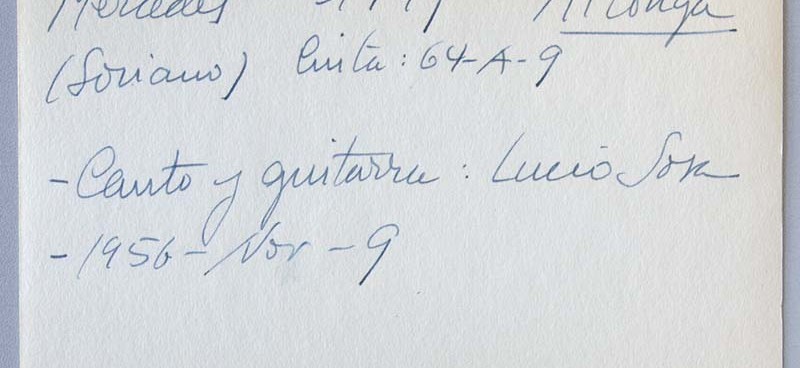 Mercedes Milonga
(Soriano) Cinta: 64-A-9
- Canto y guitarra: Lucio Sosa
- 1956 - Nov - 9